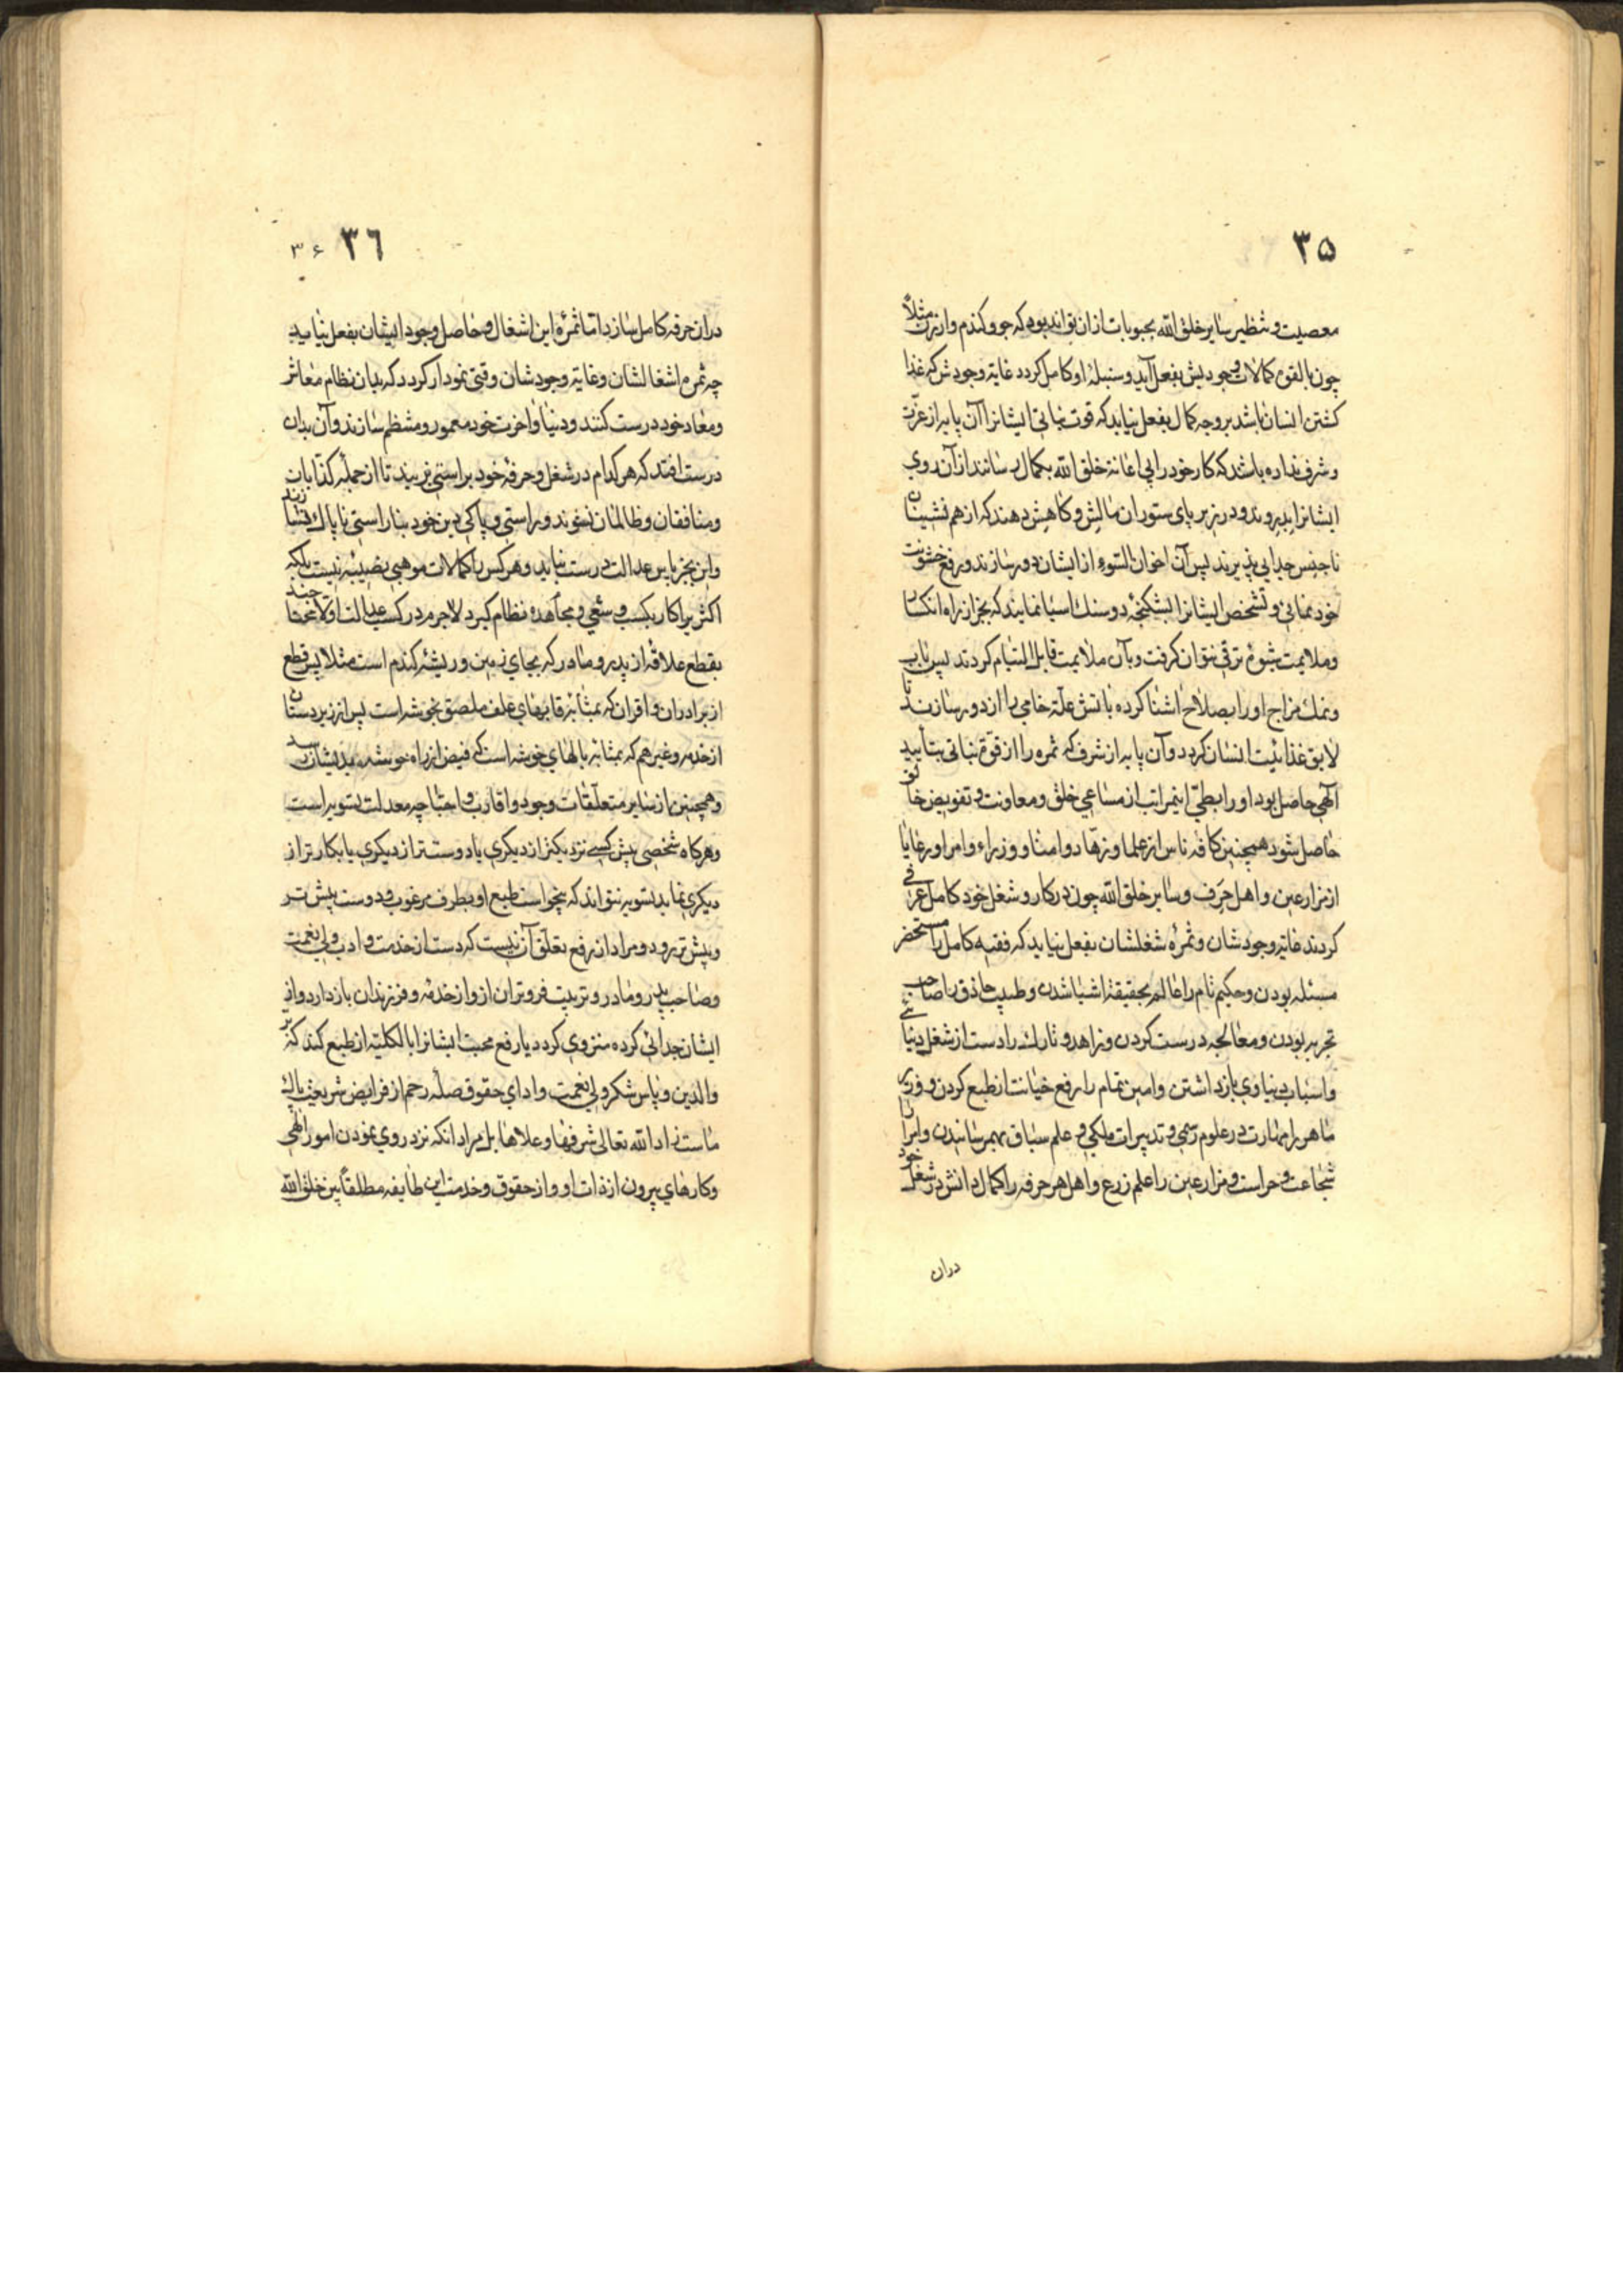 ۳۵
معصیت و تنظیر سایر خلق الله بحبوبات از ان تواند بود که جو و کندم وارزن مثلاً
چون بالقوه کمالات وجودیش بفعل آید و سنبلهٔ او کامل کردد غایة وجودش که غذا
کشتن انسان باشد بر وجه کمال بفعل نیاید که قوت نباتی ایشانرا آن پایه از عزّت
و شرف نداره باشد که کار خود را بی اعانة خلق الله بکمال رسانند از آن روی
ایشانرا بدروند و در زیر پای ستوران مالش و کاهش دهند که از هم نشینان
ناجنس جدایی پذیرند پس آن اخوان السّوء از ایشان دور سازند و رفع خشونت
خود نمائی و تشخص ایشانرا بشکنجهٔ دو سنك اسیا نمایند که بجز از راه انکسار
و ملایمت بنوع ترقی نتوان کرفت و بآن ملایمت قابل التیام کردند پس بآب
و نمك مزاج او را بصلاح اشنا کرده باتش علّة خامی را از و دور سازند تا
لایق غذائیت انسان کردد و آن پایه از شرف که ثمره را از قوّة نباتی بتأیید
آلهی حاصل بود او را بطیّ اینمراتب از مساعی خلق و معاونت و تفویض خالق
حاصل شود همچنین کافه ناس از علما و زهّاد و امنا و وزراء و امرا و رعایا
از مزارعین و اهل حِرَف و سایر خلق الله چون در کار و شغل خود کامل عرفی
کردند غایة وجودشان و ثمرهٔ شغلشان بفعل نیاید که فقیه کامل را مستحضر
مسئله بودن و حکیم تام را عالم بحقیقة اشیا شدن و طبیب حاذق را صاحب
تجربه بودن و معالجه درست کردن و زاهد و تارك را دست از شغل دنیائی
و اسباب دنیاوی بازداشتن و امین تمام را رفع خیانت از طبع کردن و وزیر
ماهر را مهارت در علوم رسمی و تدبیرات ملکی و علم سیاق بهم رسانیدن و امرا را
شجاعت و حراست و مزارعین را علم زرع و اهل هر حرفه را کمال دانش در شغل خود
دران
۳٦ ۳۶
دران حرفه کامل سازد امّا ثمرهٔ این اشغال و حاصل وجود ایشان بفعل نیاید
چه ثمره اشغالشان و غایة وجودشان وقتی نمودار کردد که بدان نظام معاش
و معاد خود درست کنند و دنیا و اخرت خود معمور و منتظم سازند و آن بدان
درست افتد که هر کدام در شغل و حرفهٔ خود براستی زیند تا از جملهٔ کذّابان
و منافقان و ظالمان نشوند و راستی و پاکی دین خود بناراستی ناپاك نسازند
و این بجز باس عدالت درست نیاید و هر کس را کمالات موهبی نصیبه نیست بلکه
اکثر را کار بکسب و سعی و مجاهده نظام کیرد لاجرم در کسب عدالت اولا محتاجند
بقطع علاقه از پدر و مادر که بجای زمین و ریشه کندم است مثلا پس قطع
از برادران و اقران که بمثابه رقابهای علف ملصق بخوشه است پس از زیردستان
از خدم و غیرهم که بمثابه بالهای خوشه است که فیض از راه خوشه بدیشان رسد
و همچنین از سایر متعلّقات وجود و اقارب و احبّا چه معدلت تسویه است
و هرکاه شخصی پیش کسی نزدیکتر از دیکری یا دوست تر از دیکری یا بکارتر از
دیکری نماید تسویه نتواند که بخواست طبع او بطرف مرغوب و دوست پیش تر
و بیش تر رود و مراد از رفع تعلّق آن نیست که دست از خدمت و ادب ولی نعمت
و صاحب پدر و مادر و تربیت فروتران از و از خدمه و فرزندان بازدارد و از
ایشان جدائی کرده منزوی کردد یا رفع محبت ایشانرا بالکلیّه از طبع کند که برّ
والدین و پاس شکر ولی نعمت و ادای حقوق صلّه رحم از فرایض شریعت پاك
ماست زاد الله تعالی شرفها و علاها بل مراد انکه نزد روی نمودن امور الهی
و کارهای بیرون از ذات او و از حقوق و خدمت این طایفه مطلقاً بین خلق الله